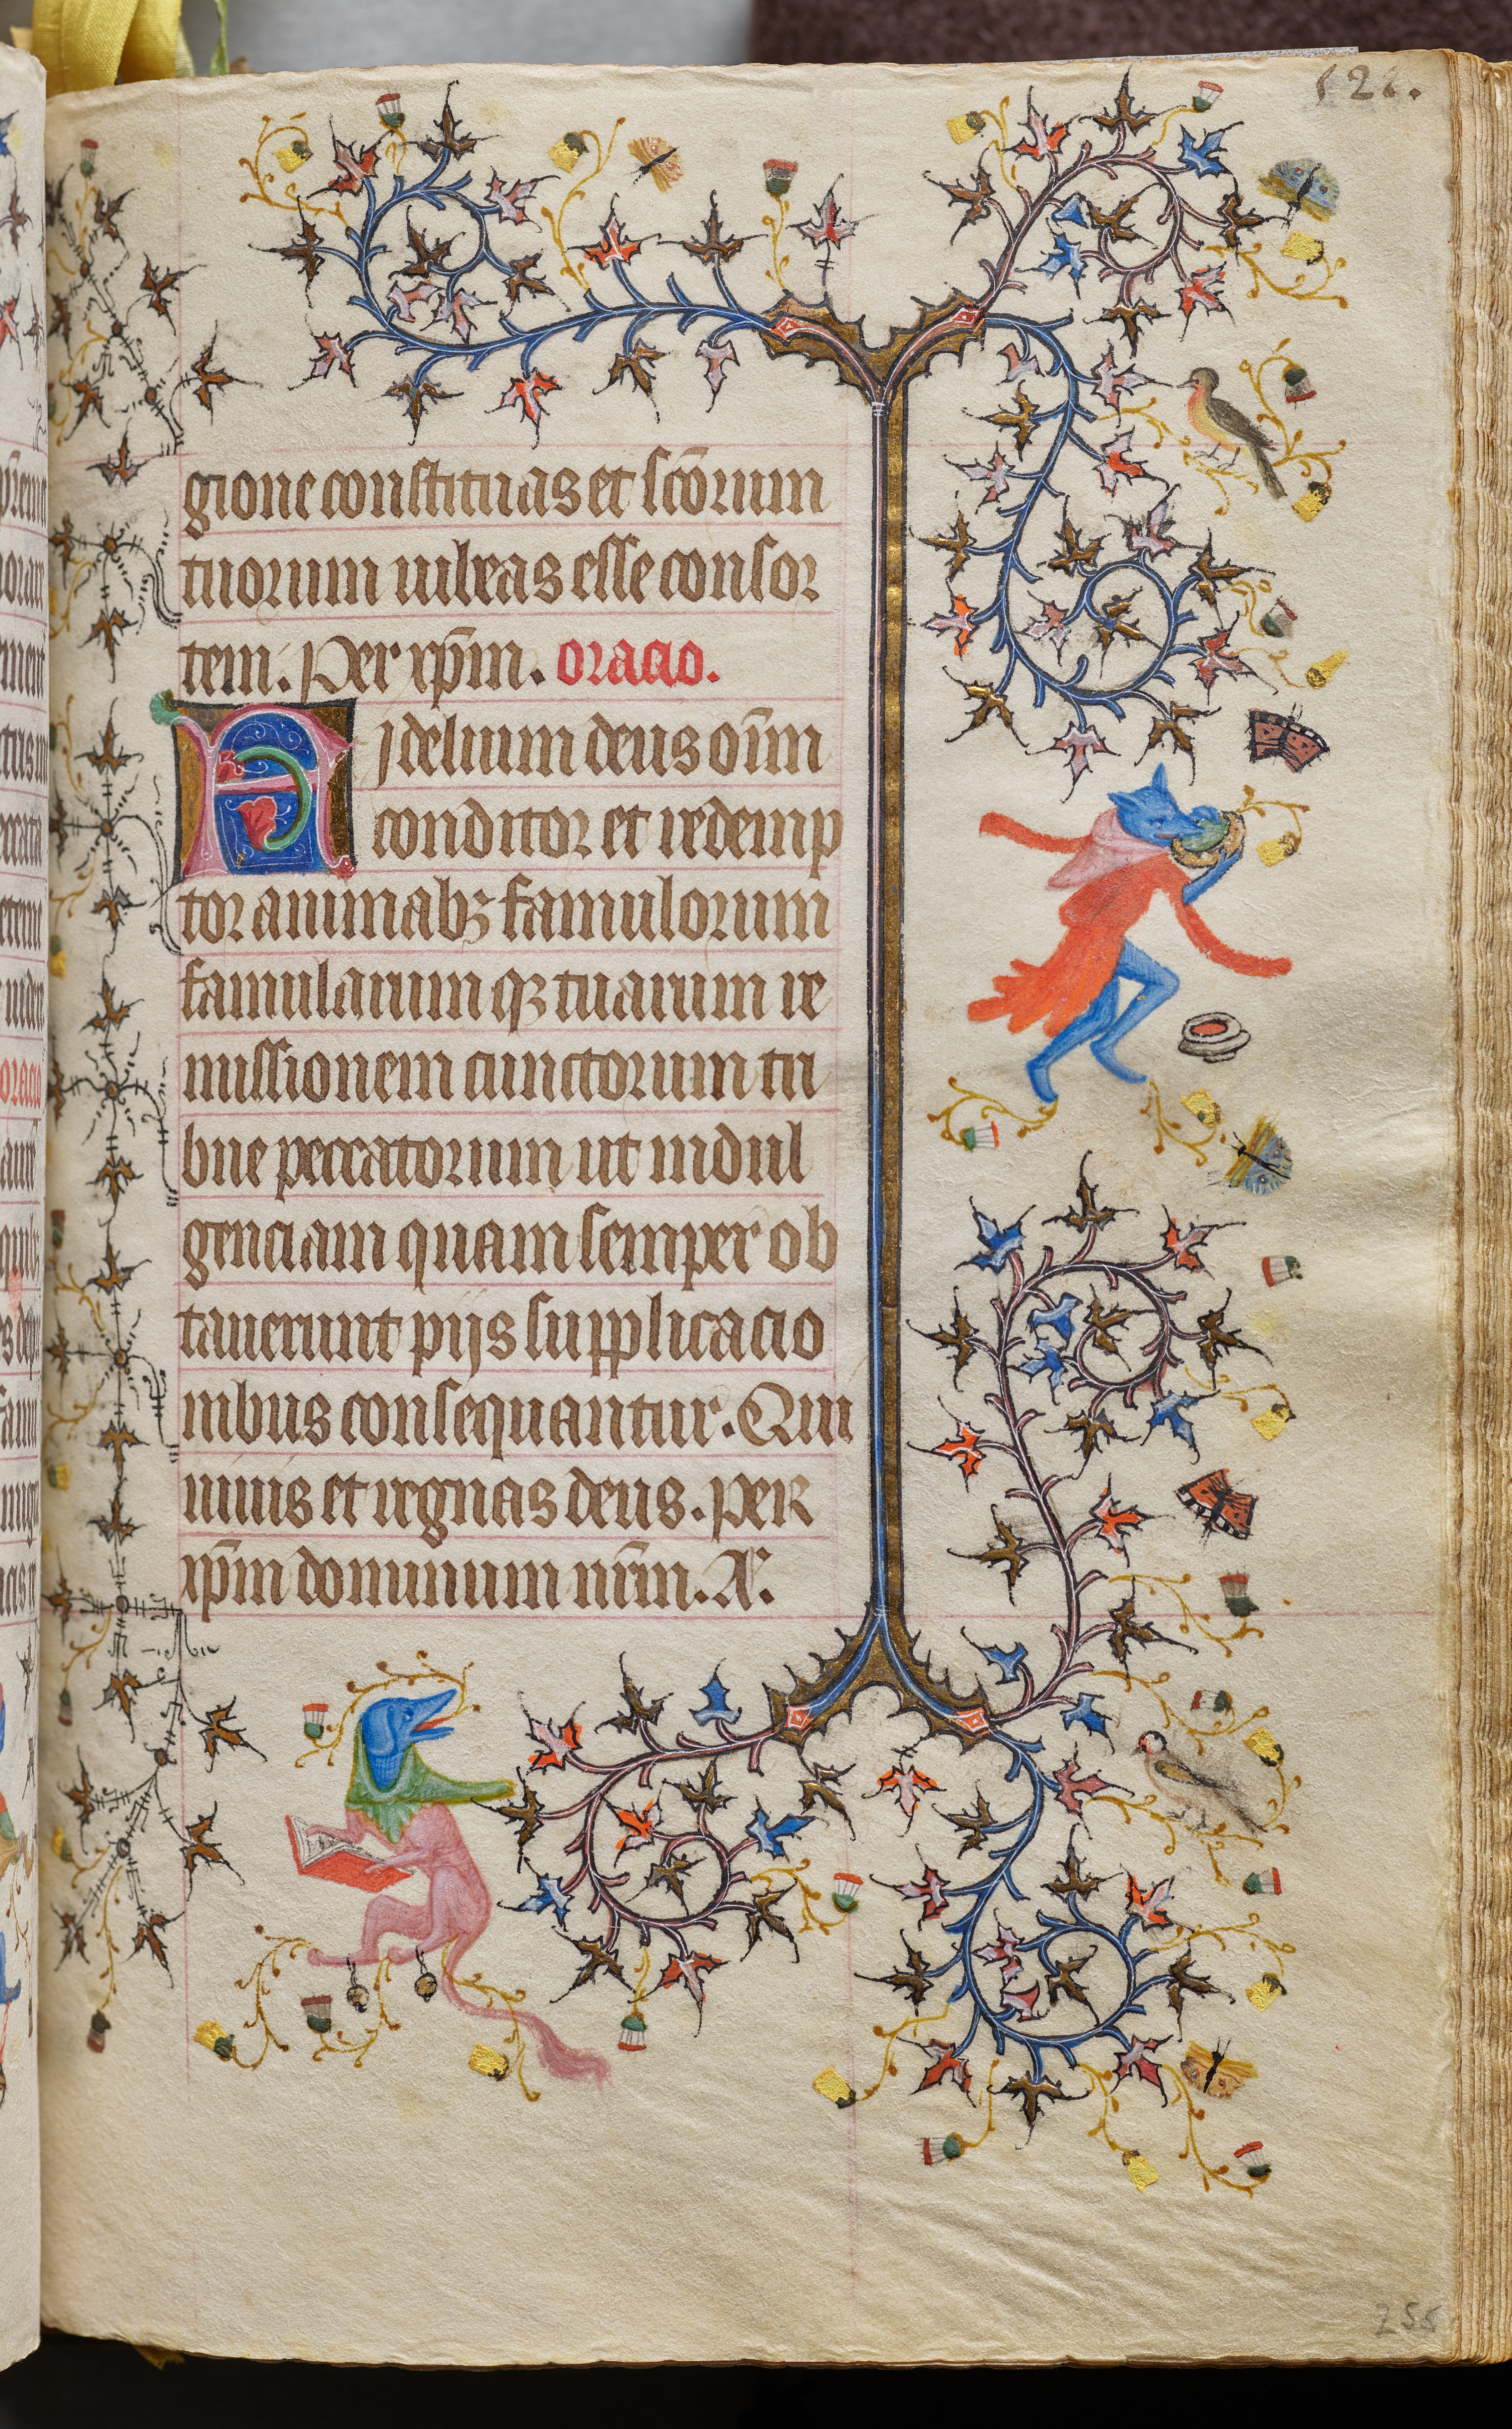 121.
gione constituas et sco̅rum
tuorum iubeas esse consor
tem. Per xp̅m. oracio.
Fidelium deus oi̅m
conditor et redemp
tor animabꝫ famulorum
famularum qꝫ tuarum re
missionem cunctorum tri
bue peccatorum ut indul
genciam quam semper ob
tauerunt pijs supplicacio
nibus consequantur. Qui
uiuis et regnas deus. PER
xp̅m dominum nr̅m. A.
255